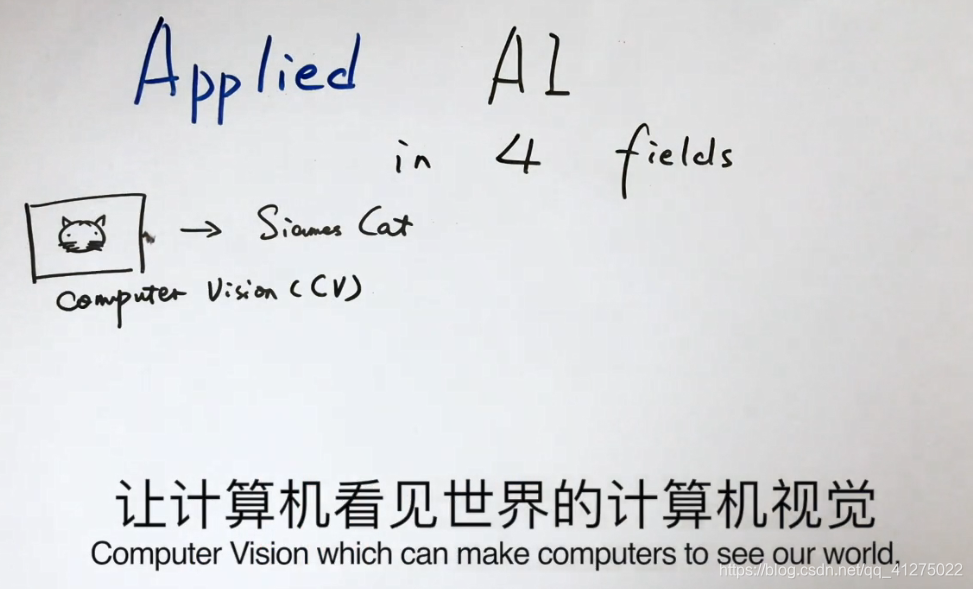 Applied AI
in 4 fields
→ Siames Cat
Computer Vision (CV)
让计算机看见世界的计算机视觉
Computer Vision which can make computers to see our world,
https://blog.csdn.net/qq_41275022